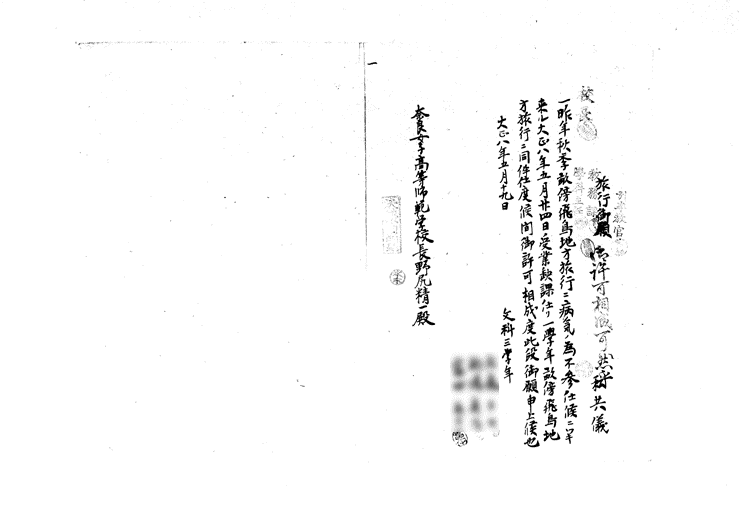 校長
旅行御願
御許可相成可然哉
私共儀
一昨年秋季畝傍飛鳥地方旅行ニ病気ノ為不参仕候ニ
来ル大正八年五月廿四日受業欠課仕リ一學年畝傍飛鳥地
方旅行ニ同伴仕度候間御許可相成度此段御願申上候也
大正八年五月十九日
文科三学年
奈良女子高等師範学校長野尻精一殿